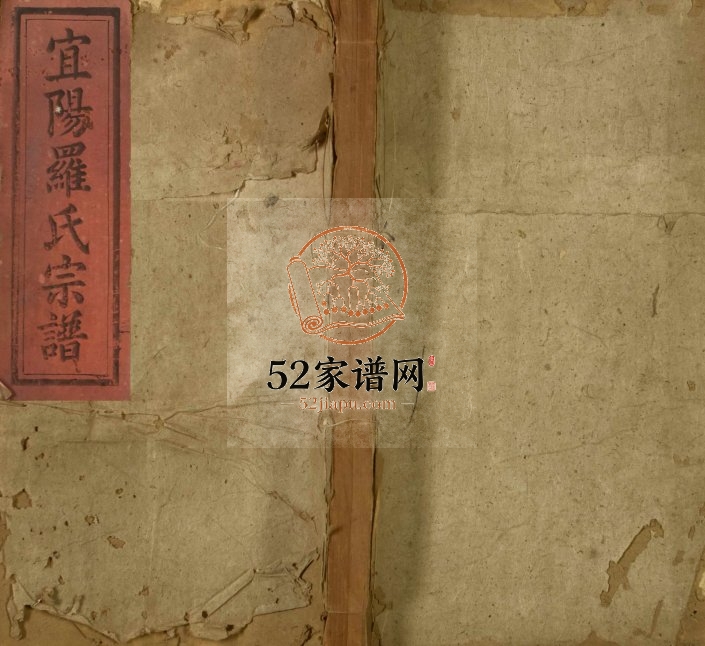 宜陽羅氏宗譜
52家谱网
52jiapu.com